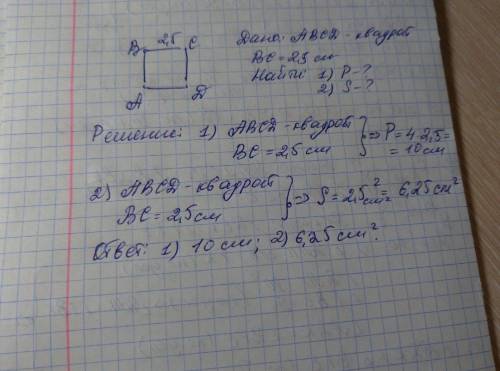 B 2,5 C
A D
Дано: ABCD - квадрат
BC = 2,5 см
Найти: 1) P-?
2) S-?
Решение: 1) ABCD - квадрат
BC = 2,5 см } => P = 4·2,5 =
= 10 см
2) ABCD - квадрат
BC = 2,5 см } => S = 2,5² см² = 6,25 см²
Ответ: 1) 10 см; 2) 6,25 см².